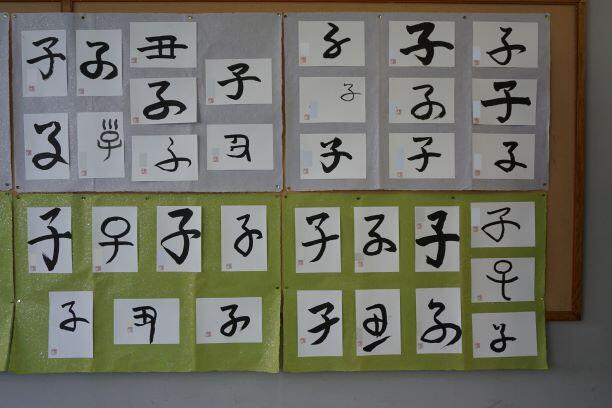 子 子 丑
子 子
子 子 子 丑
子 子 子
子 子 子
子 子 子
子 子 子 子
子 丑 子
子 子 子 子
子
子 丑 子 子